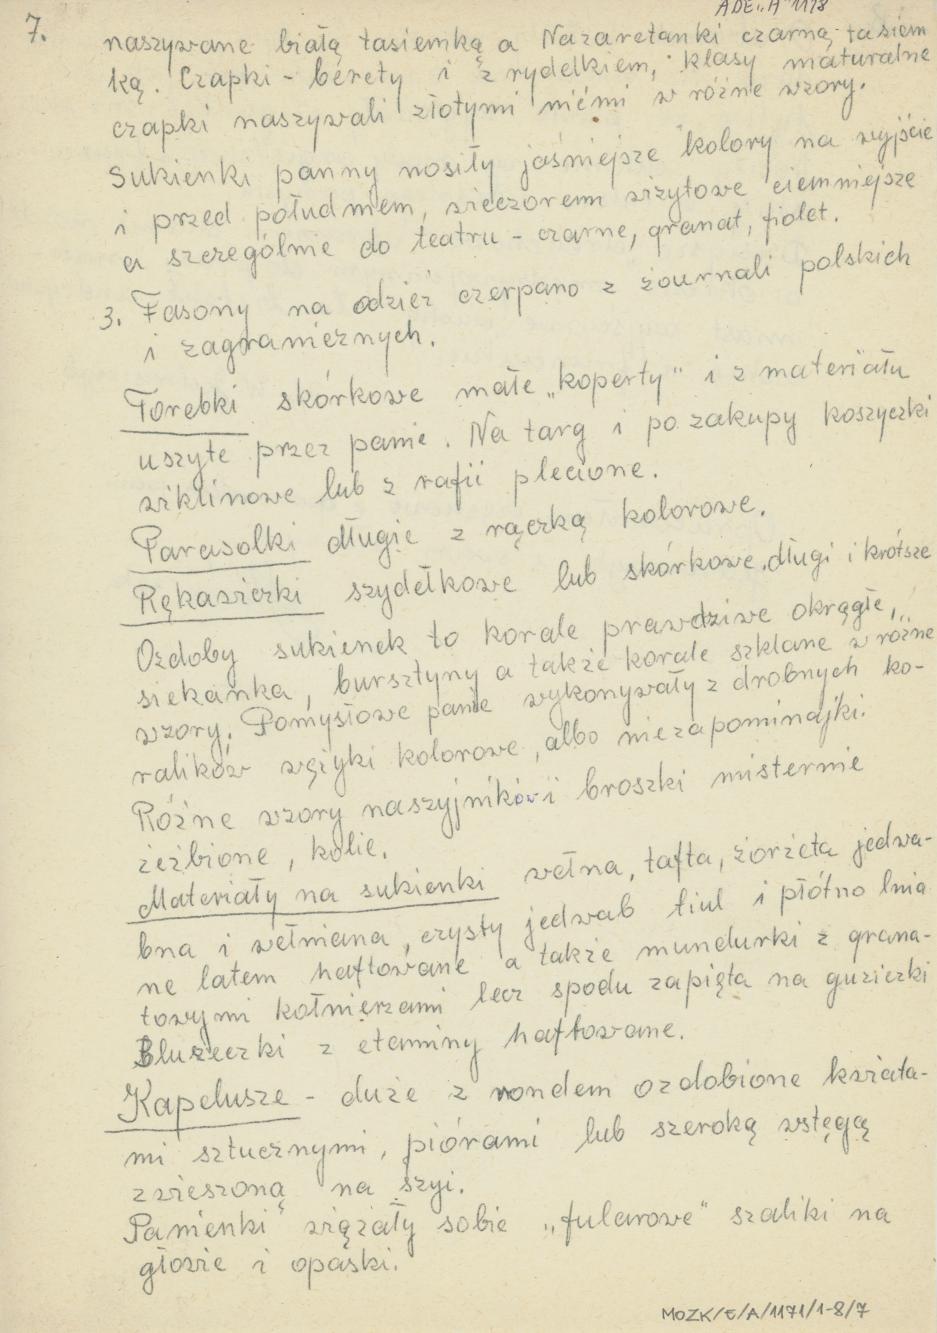 ADE "A" 1178
7.
naszywane białą tasiemką a Nazaretanki czarną tasiem
ką. Czapki - berety i z rydelkiem, klasy maturalne
czapki naszywali złotymi nićmi w różne wzory.
Sukienki panny nosiły jaśniejsze kolory na wyjście
i przed południem, wieczorem wizytowe ciemniejsze
a szczególnie do teatru - czarne, granat, fiolet.
3. Fasony na odzież czerpano z żournali polskich
i zagranicznych.
Torebki skórkowe małe „koperty" i z materiału
uszyte przez panie. Na targ i po zakupy koszyczki
wiklinowe lub z rafii plecione.
Parasolki długie z rączką kolorowe.
Rękawiczki szydełkowe lub skórkowe, długi i krótsze
Ozdoby sukienek to korale prawdziwe okrągłe,
siekanka, bursztyny a także korale szklane w różne
wzory. Pomysłowe panie wykonywały z drobnych ko-
ralików wężyki kolorowe, albo niezapominajki.
Różne wzory naszyjników i broszki misternie
żeźbione, kolie.
Materiały na sukienki wełna, tafta, żorżeta jedwa-
bna i wełniana, czysty jedwab tiul i płótno lnia
ne latem haftowane a także mundurki z grana-
towymi kołnierzami lecz spodu zapięta na guziczki
Bluzeczki z etaminy haftowane.
Kapelusze - duże z rondem ozdobione kwiata-
mi sztucznymi, piórami lub szeroką wstęgą
zwieszoną na szyi.
Panienki wiązały sobie „fularowe" szaliki na
głowie i opaski.
MOZK/E/A/1171/1-8/7